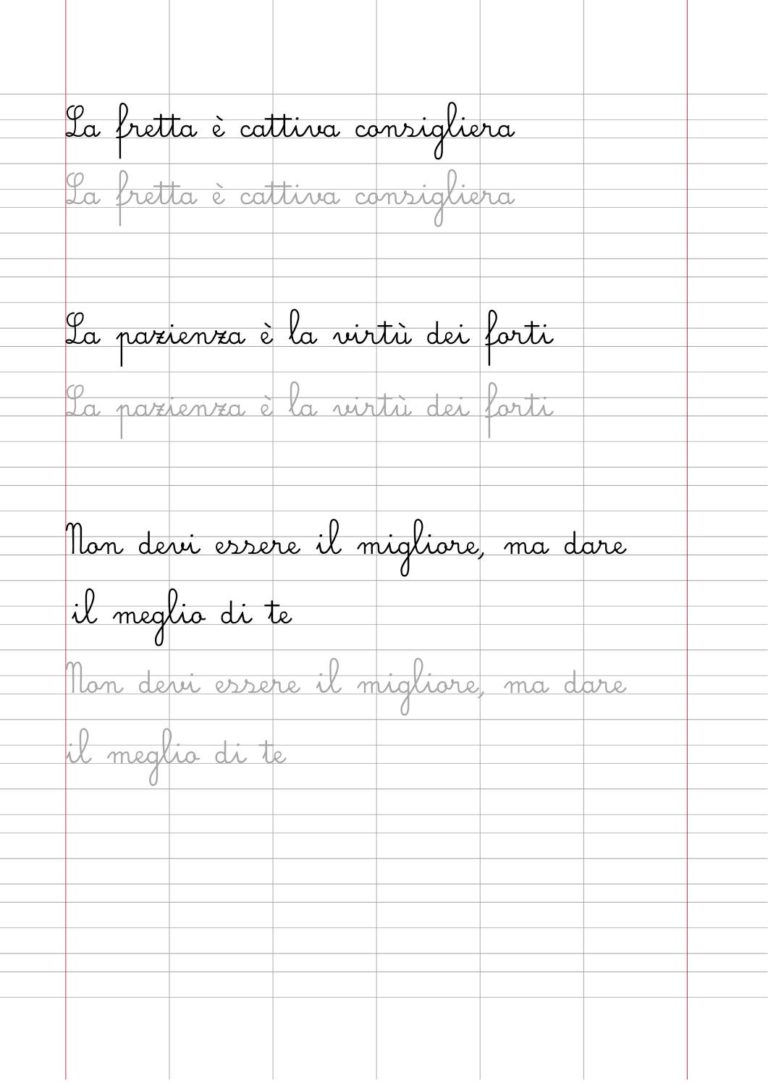 La fretta è cattiva consigliera
La fretta è cattiva consigliera
La pazienza è la virtù dei forti
La pazienza è la virtù dei forti
Non devi essere il migliore, ma dare
il meglio di te
Non devi essere il migliore, ma dare
il meglio di te